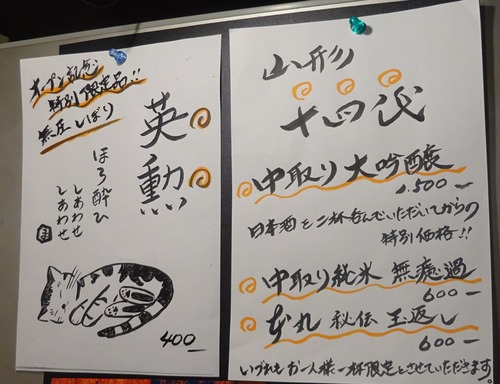 オープン記念
特別限定品!!
無圧しぼり
英勲
ほろ酔ひ
しあわせ
しあわせ
400-
山形
十四代
中取り大吟醸
1,500-
日本酒を二杯呑んでいただいてからの
特別価格!!
中取り純米 無濾過
600-
本丸 秘伝玉返し
600-
いづれもお一人様一杯限定とさせていただきます